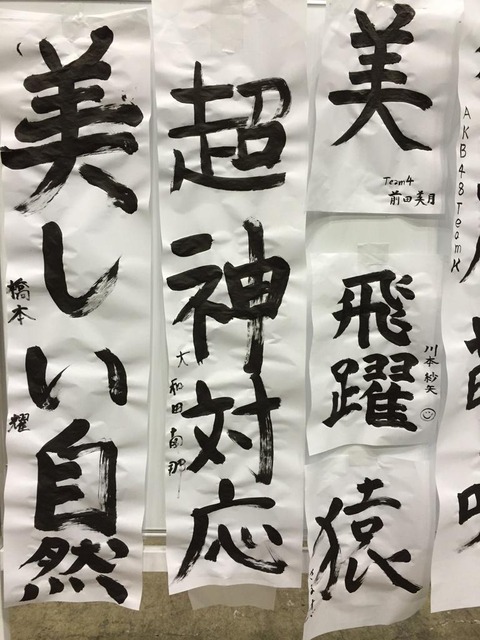 美しい自然
橋本
耀
超神対応
大和田南那
美
Team4
前田美月
飛躍
川本紗矢
猿
AKB48 TeamK